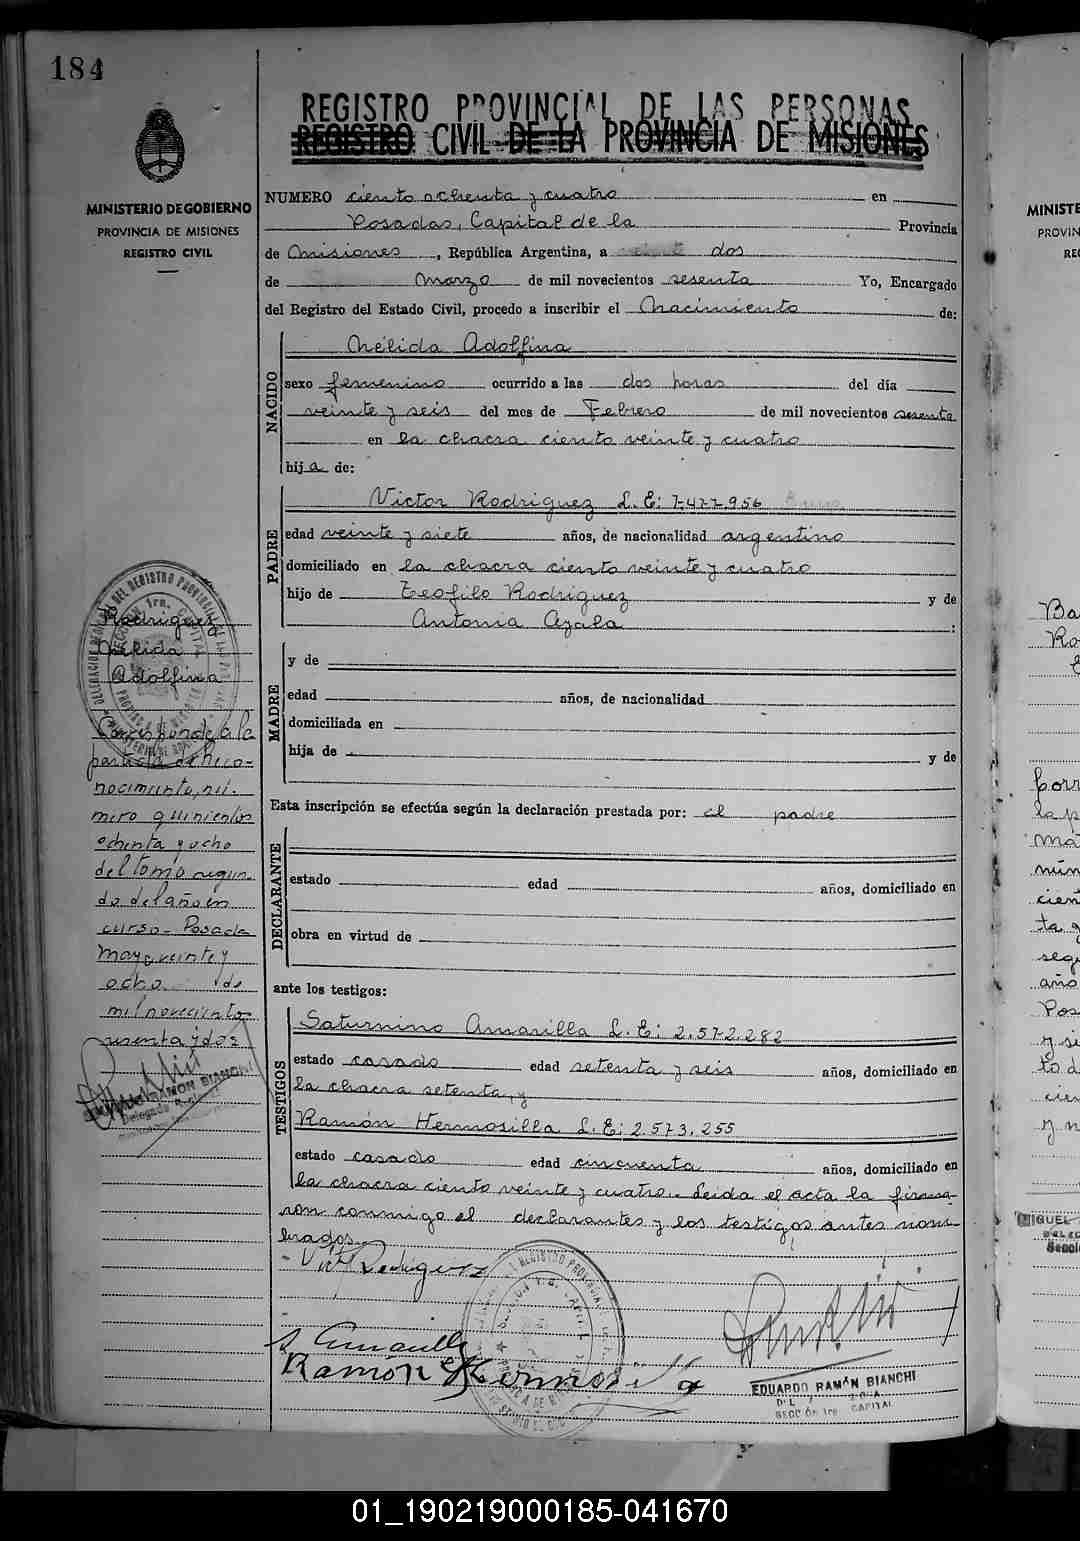 184
REGISTRO PROVINCIAL DE LAS PERSONAS
REGISTRO CIVIL DE LA PROVINCIA DE MISIONES
MINISTERIO DE GOBIERNO
PROVINCIA DE MISIONES
REGISTRO CIVIL
NUMERO ciento ochenta y cuatro en
Posadas, Capital de la Provincia
de Misiones, República Argentina, a dos
de Marzo de mil novecientos sesenta Yo, Encargado
del Registro del Estado Civil, procedo a inscribir el Nacimiento de:
NACIDO
Nélida Adolfina
sexo femenino ocurrido a las dos horas del día
veinte y seis del mes de Febrero de mil novecientos sesenta
en la chacra ciento veinte y cuatro
hija de:
PADRE
Victor Rodriguez L.E: 7.477.956
edad veinte y siete años, de nacionalidad argentino
domiciliado en la chacra ciento veinte y cuatro
hijo de Teofilo Rodriguez y de
Antonia Ayala :
MADRE
y de
edad años, de nacionalidad
domiciliada en
hija de y de
Esta inscripción se efectúa según la declaración prestada por: el padre
DECLARANTE
estado edad años, domiciliado en
obra en virtud de
ante los testigos:
TESTIGOS
Saturnino Amarilla L.E: 2.572.282
estado casado edad setenta y seis años, domiciliado en
la chacra setenta, y
Ramón Hermosilla L.E: 2.573.255
estado casado edad cincuenta años, domiciliado en
la chacra ciento veinte y cuatro.. Leida el acta la firma-
ron conmigo el declarantes y los testigos antes nom-
brados.
Vict Rodriguez
S Amarilla
Ramón Hermosilla
EDUARDO RAMÓN BIANCHI
SECCIÓN 1ra. CAPITAL
Rodriguez
Nélida
Adolfina
Corresponde a la
partida de Reco-
nocimiento, nú-
mero quinientos
ochenta y ocho
del tomo segun-
do del año en
curso - Posada
Mayo veinte y
ocho de
mil novecientos
sesenta y dos
RAMON BIANCHI
Delegado
MINISTE
PROVIN
RE
Ba
Ro
Corr
la p
Ma
núm
cien
ta y
segu
año
Pos
y si
to d
cien
y n
IGUEL
01_190219000185-041670